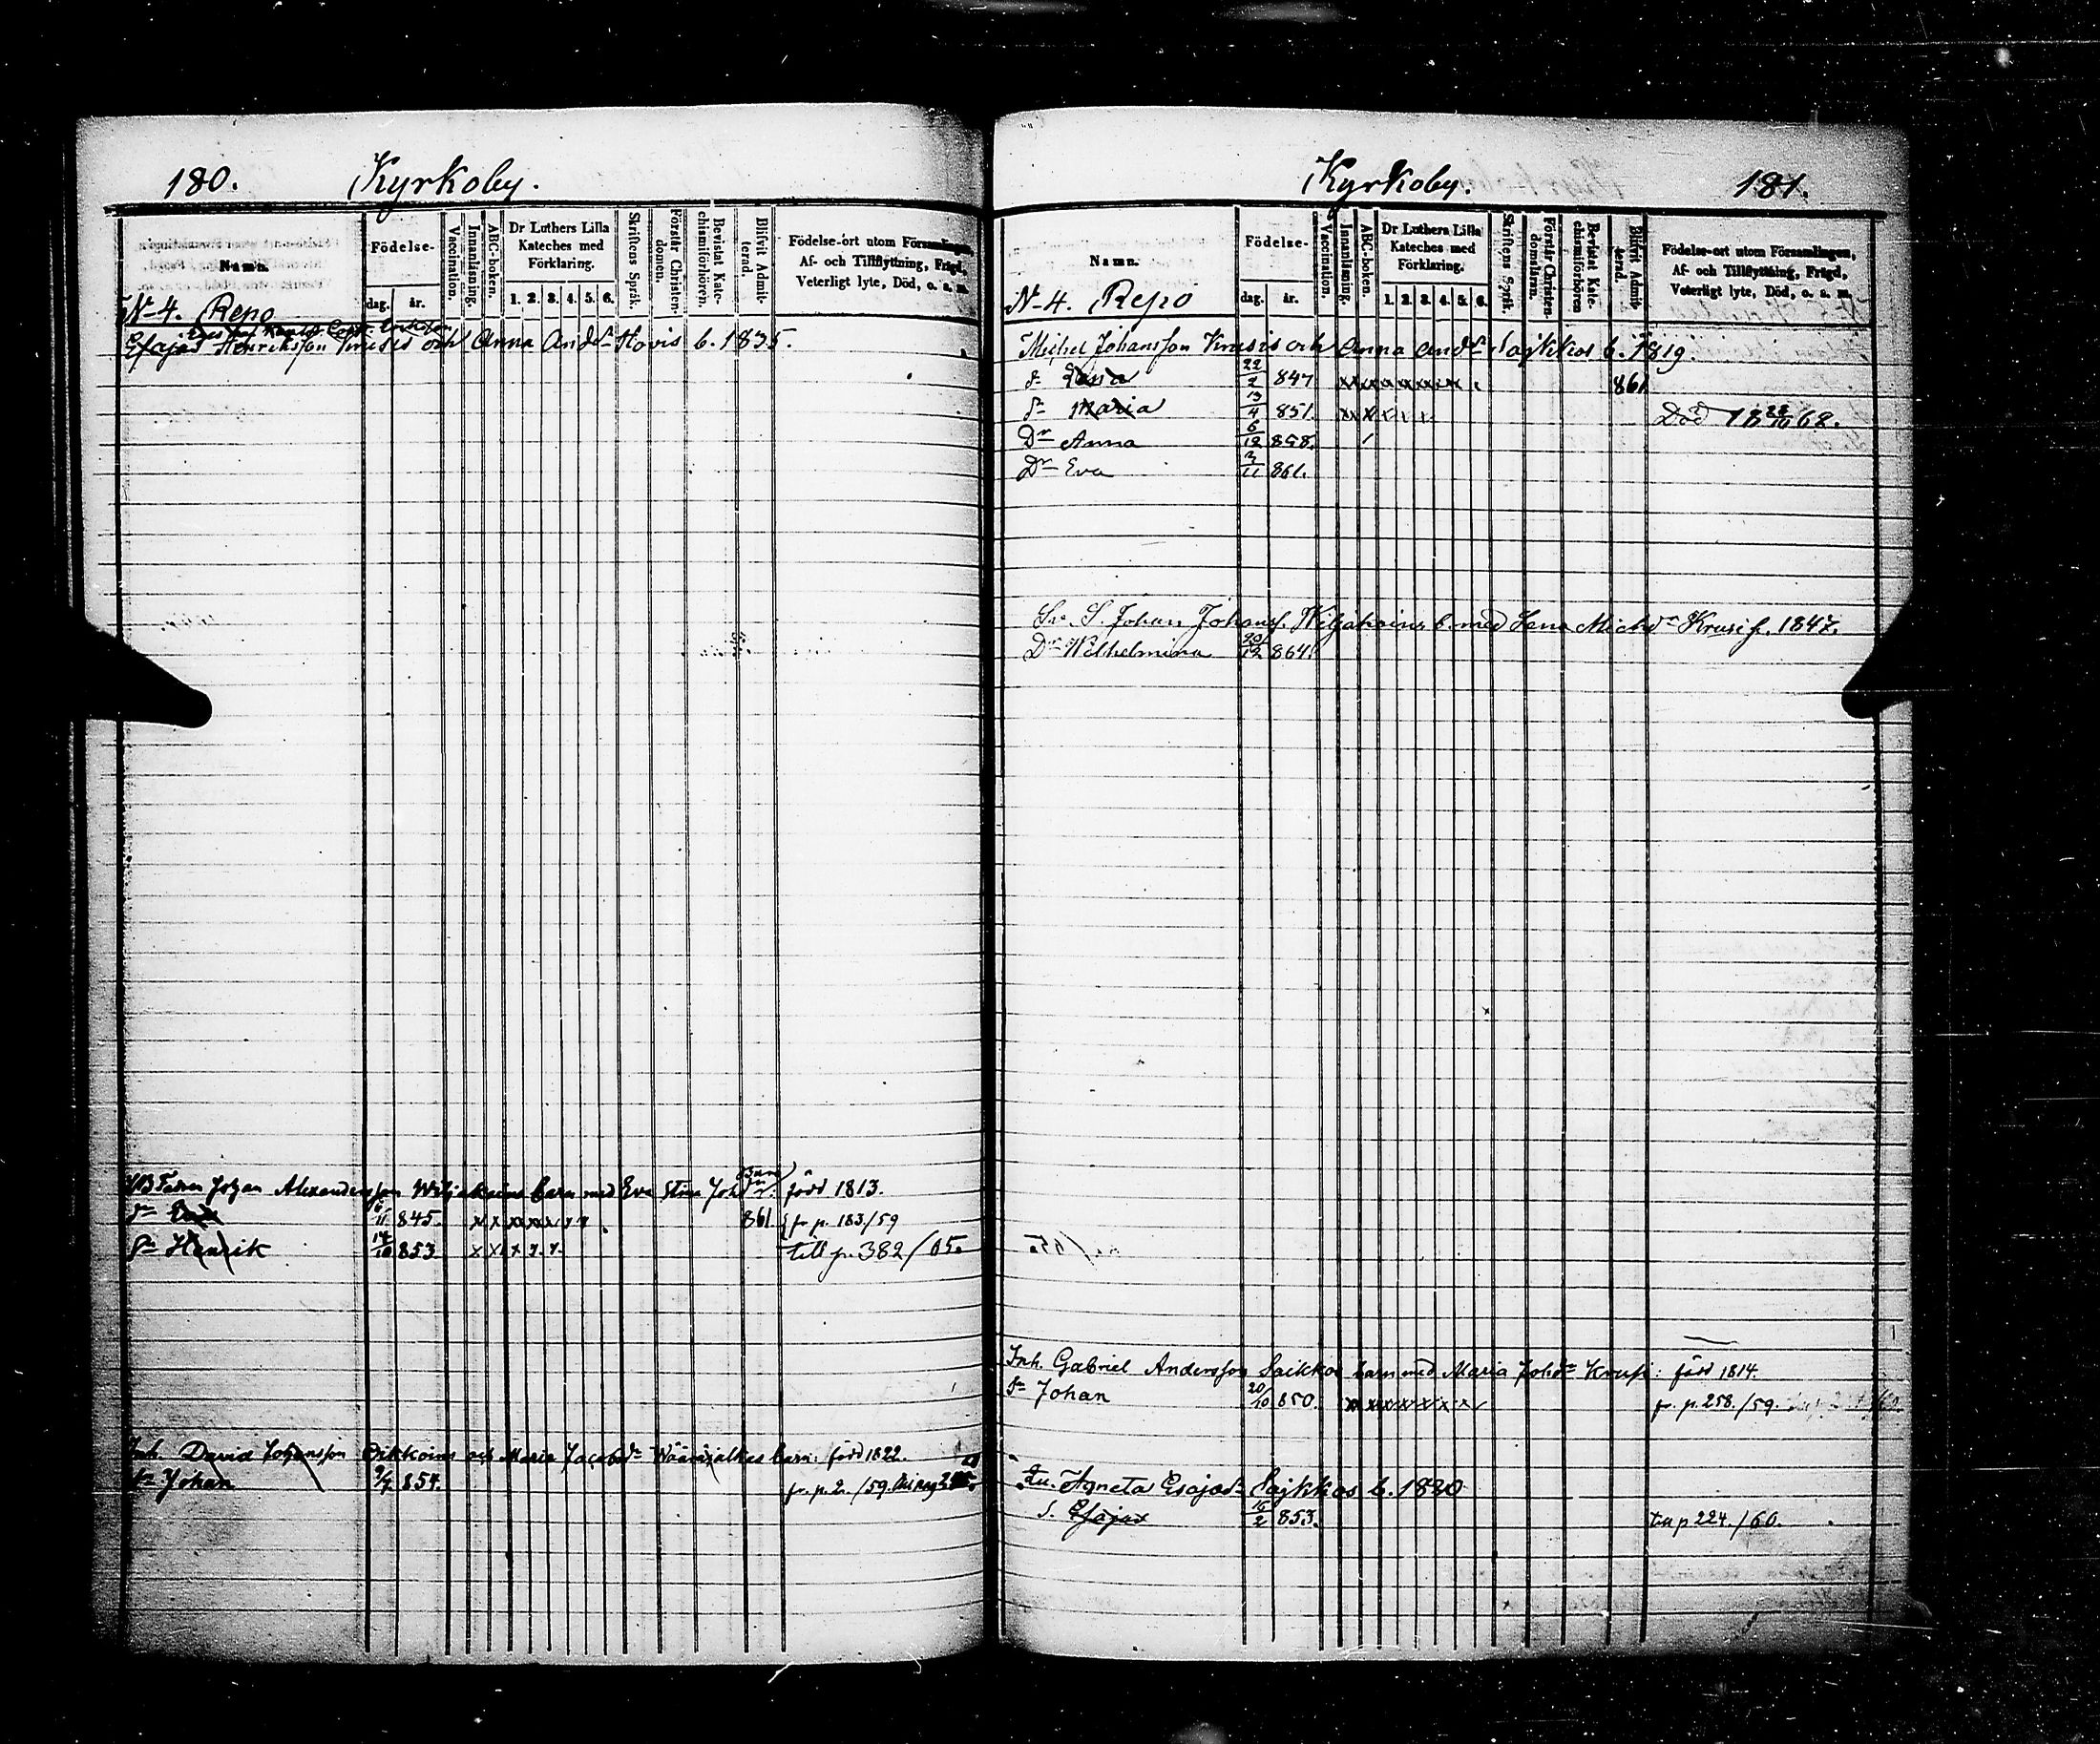 180. Kyrkoby.
Namn.
Födelse-
dag. år.
Vaccination.
Innanläsning.
ABC-boken.
Dr Luthers Lilla Kateches med Förklaring.
1. 2. 3. 4. 5. 6.
Skriftens Språk.
Förstår Christen-domen.
Bevistat Kate-chismiförhören.
Blifvit Admit-terad.
Födelse-ort utom Församlingen, Af- och Tillflyttning, Frägd, Veterligt lyte, Död, o. s. m.
N-4. Repo
Esajas Henriksson Krusis och Anna Andsr Hovis b. 1835.
Johan Alexandersson Wiljakains barn med Eva Stina född 1813.
11 845. x x x x x x x x 861 fr. p. 183./59
Sn Henrik 14/10 853. x x x x x x till p. 382/65.
Inh. David Johansson Oikkoins och Maria Jacobsdr barn: född 1822.
Sn Johan 9/7 854. fr. p. 2./59.
Kyrkoby. 181.
Namn.
Födelse-
dag. år.
Vaccination.
Innanläsning.
ABC-boken.
Dr Luthers Lilla Kateches med Förklaring.
1. 2. 3. 4. 5. 6.
Skriftens Språk.
Förstår Christen-domsläran.
Bevistat Kate-chismiförhören
Blifvit Admit-terad.
Födelse-ort utom Församlingen, Af- och Tillflyttning, Frägd, Veterligt lyte, Död, o. s. m.
N-4. Repo
Michel Johansson Krusis och Anna Andsr Sajkkos b. 1819
22/2 847 861
Maria 13/4 851. Död 62.
Dr Anna 6/12 858.
Dr Eva 3/11 861.
S. Johan Johanss. Wiljakains b. med Lena Michdr Krusis. 1847.
Dr Wilhelmina 20/12 864.
Inh. Gabriel Andersson Saikkos barn med Maria Johdr Krusi: född 1814.
Sn Johan 20/10 850. x x x x x x x fr. p. 258./59.
Agneta Esajædr Sajkkos b. 1820
S. Esajas 16/2 853. p 224./60.